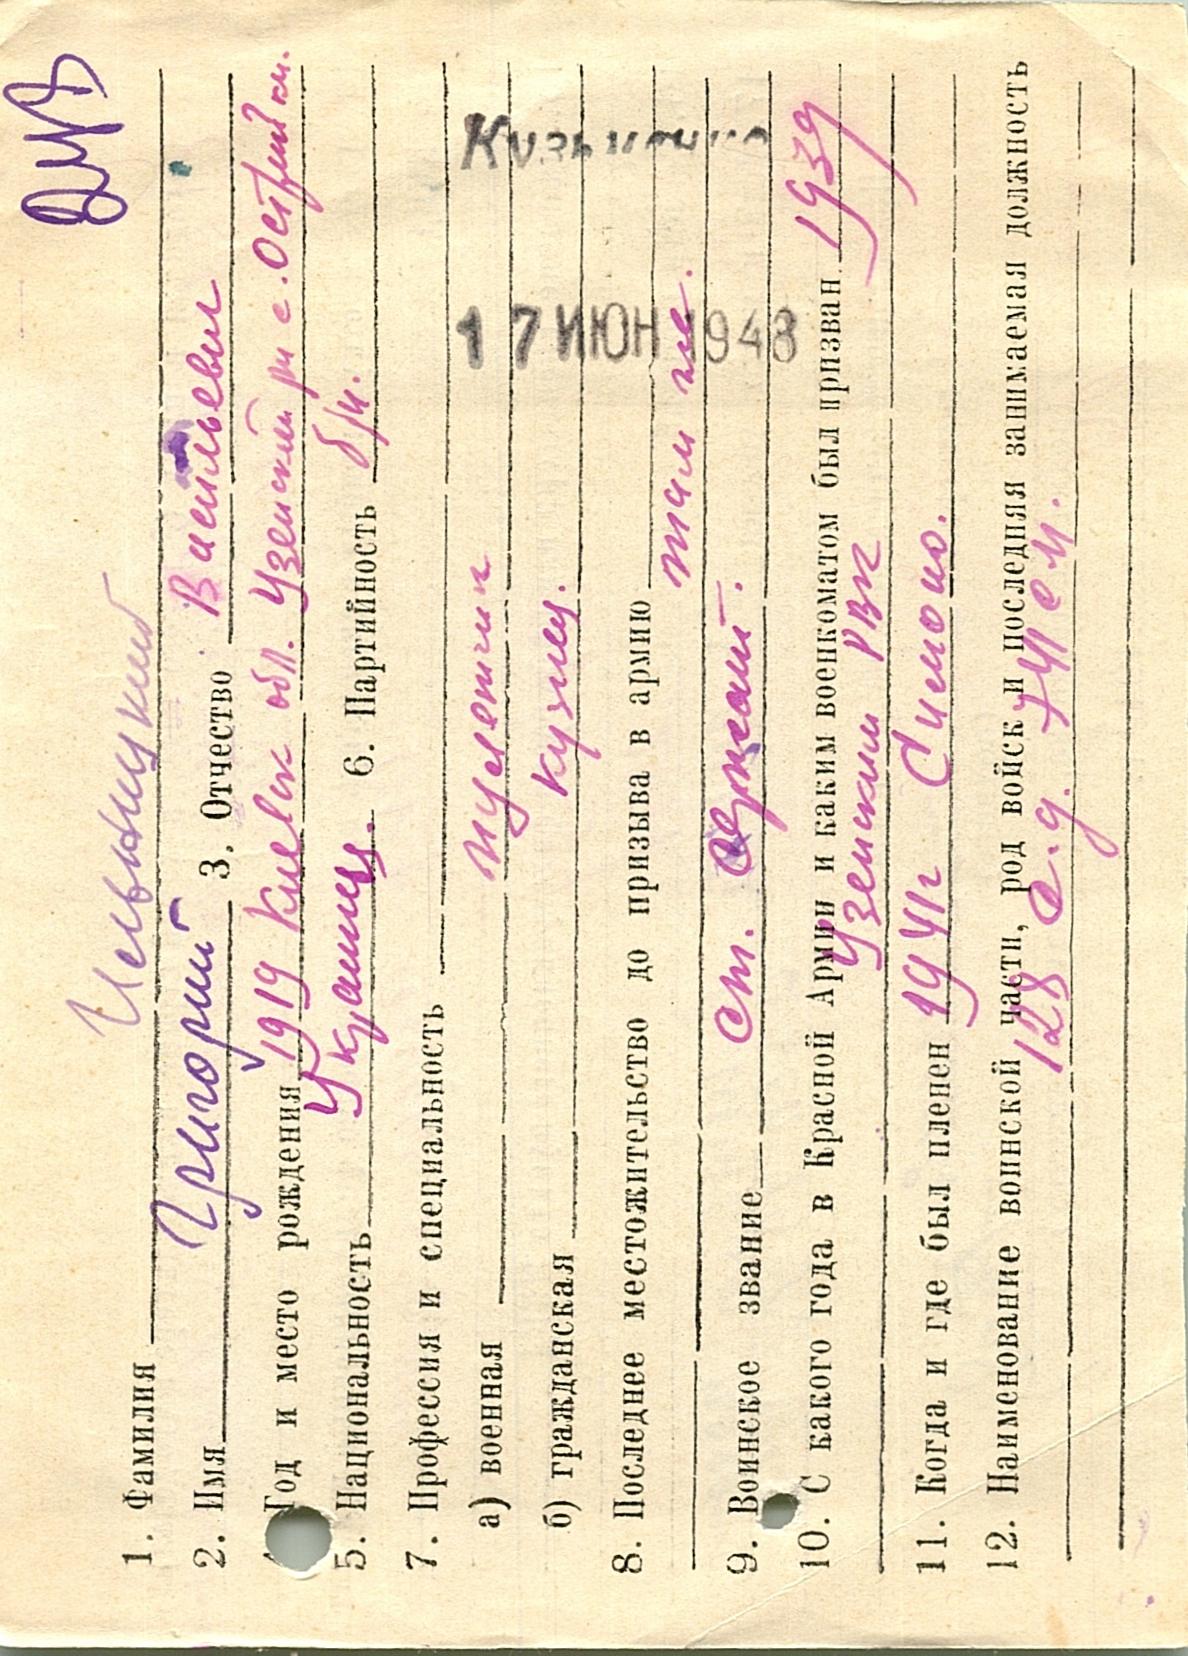 1. Фамилия
2. Имя Григорий 3. Отчество Васильевич
Год и место рождения 1919 Киевск обл. Узинский р-н с. Острий
5. Национальность Украинец. 6. Партийность б/п.
7. Профессия и специальность
а) военная пулеметчик
б) гражданская кузнец.
Кузьменко
17 ИЮН 1948
8. Последнее местожительство до призыва в армию там же.
9. Воинское звание ст. сержант.
10. С какого года в Красной Армии и каким военкоматом был призван 1939
Узинским РВК
11. Когда и где был пленен 1941г
12. Наименование воинской части, род войск и последняя занимаемая должность
128 с.д.